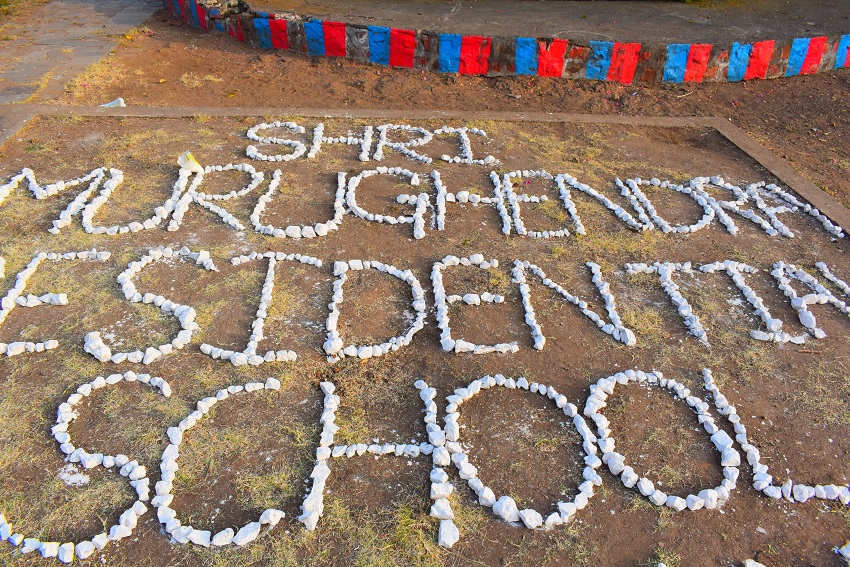 SHRI
MURUGHENDRA
ESIDENTIA
SCHOOL